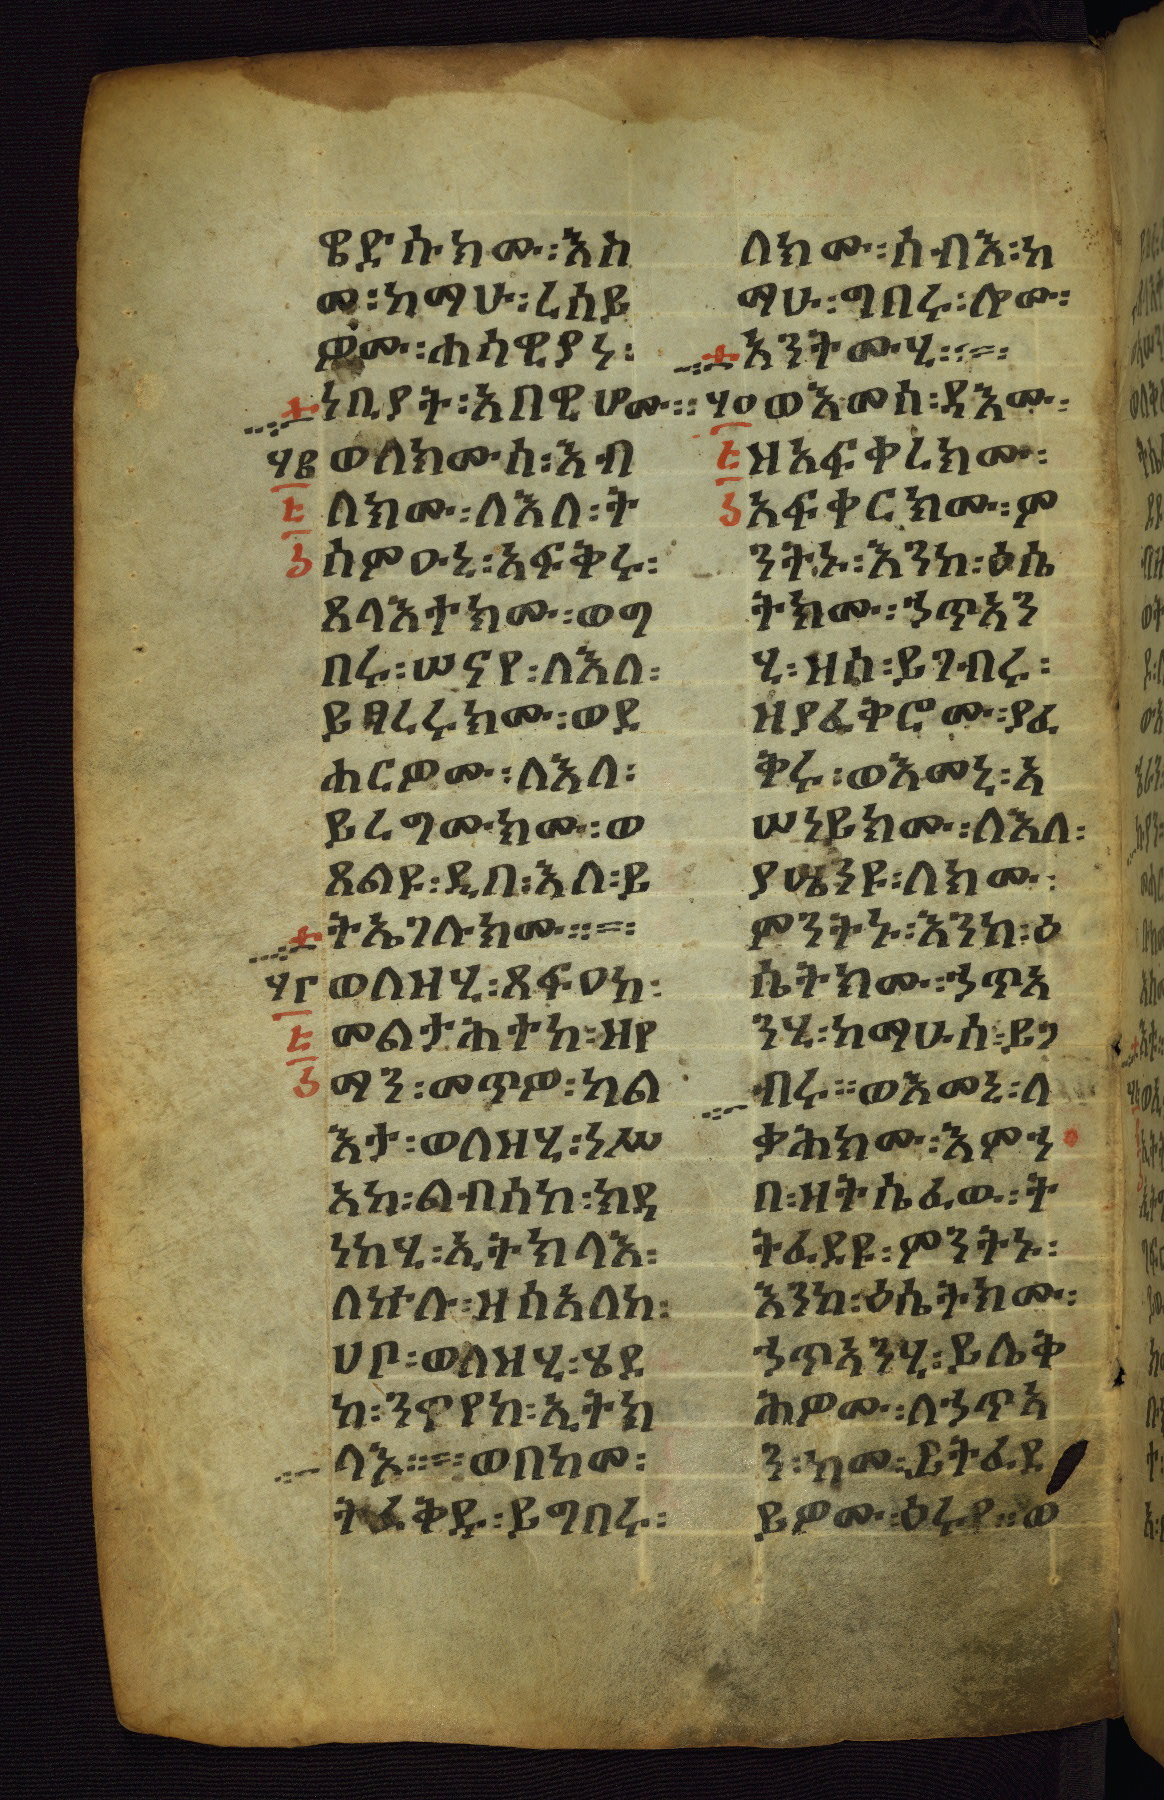 ዌድሱክሙ፡እስ
መ፡ከማሁ፡ረሰይ
ዎሙ፡ሐሳዊያነ፡
ነቢያት፡አበዊሆሙ።
ወለክሙሰ፡እብ
ለክሙ፡ለእለ፡ት
ሰምዑኒ፡አፍቅሩ፡
ጸላእተክሙ፡ወግ
በሩ፡ሠናየ፡ለእለ፡
ይፃረሩክሙ፡ወደ
ሐርዎሙ፡ለእለ፡
ይረግሙክሙ፡ወ
ጸልዩ፡ዲበ፡እለ፡ይ
ትኤገሉክሙ።
ወለዘሂ፡ጸፍዐከ፡
መልታሕተከ፡ዘየ
ማን፡መጥዎ፡ካል
እታ፡ወለዘሂ፡ነሥ
አከ፡ልብሰከ፡ክዳ
ነከሂ፡ኢትክላእ፡
ለኵሉ፡ዘሰአለከ፡
ሀቦ፡ወለዘሂ፡ሄደ
ከ፡ንዋየከ፡ኢትክ
ላእ።ወበከመ፡
ትፈቅዱ፡ይግበሩ፡
ለክሙ፡ሰብእ፡ከ
ማሁ፡ግበሩ፡ሎሙ፡
አንትሙሂ።
ወእመሰ፡ዳእሙ፡
ዘአፍቀረክሙ፡
አፍቀርክሙ፡ም
ንትኑ፡እንከ፡ዕሴ
ትክሙ፡ኃጥአን
ሂ፡ዝሰ፡ይገብሩ፡
ዘያፈቅሮሙ፡ያፈ
ቅሩ፡ወእመኒ፡አ
ሠነይክሙ፡ለእለ፡
ያሤንዩ፡ለክሙ፡
ምንትኑ፡እንከ፡ዕ
ሴትክሙ፡ኃጥአ
ንሂ፡ከማሁሰ፡ይገ
ብሩ።ወእመኒ፡ለ
ቃሕክሙ፡እምኀ
በ፡ዘትሴፈው፡ት
ትፈደዩ፡ምንትኑ፡
እንከ፡ዕሴትክሙ፡
ኃጥአንሂ፡ይሌቅ
ሕዎሙ፡ለኃጥአ
ን፡ከመ፡ይትፈደ
ይዎሙ፡ዕሩየ።ወ